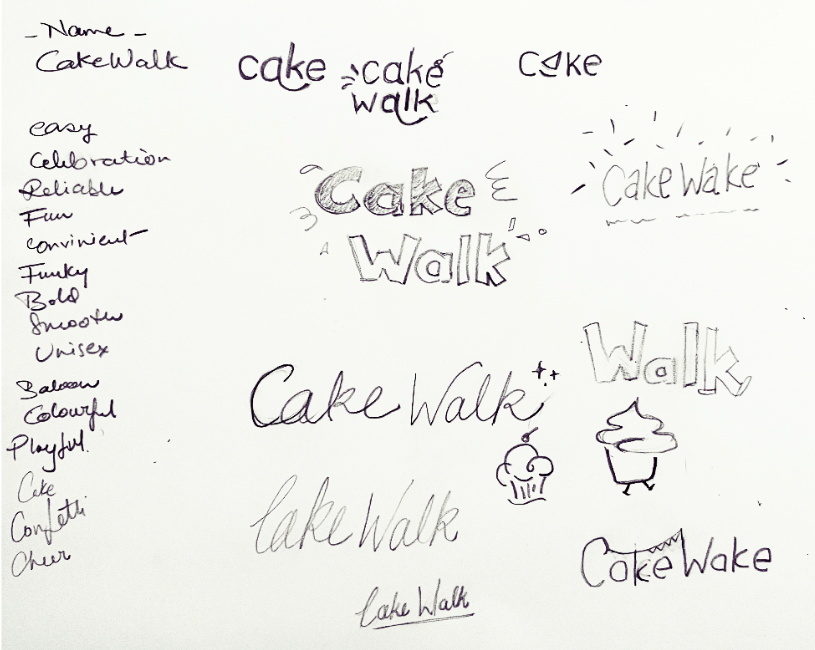 - Name -
CakeWalk
easy
Celebration
Reliable
Fun
convinient
Funky
Bold
Smooth
Unisex
Baloon
Colourful
Playful
Cake
Confetti
Cheer
cake
cake
walk
cake
Cake
Walk
Cake Wake
Cake Walk
Walk
Cake Walk
Cake Walk
Cake Wake